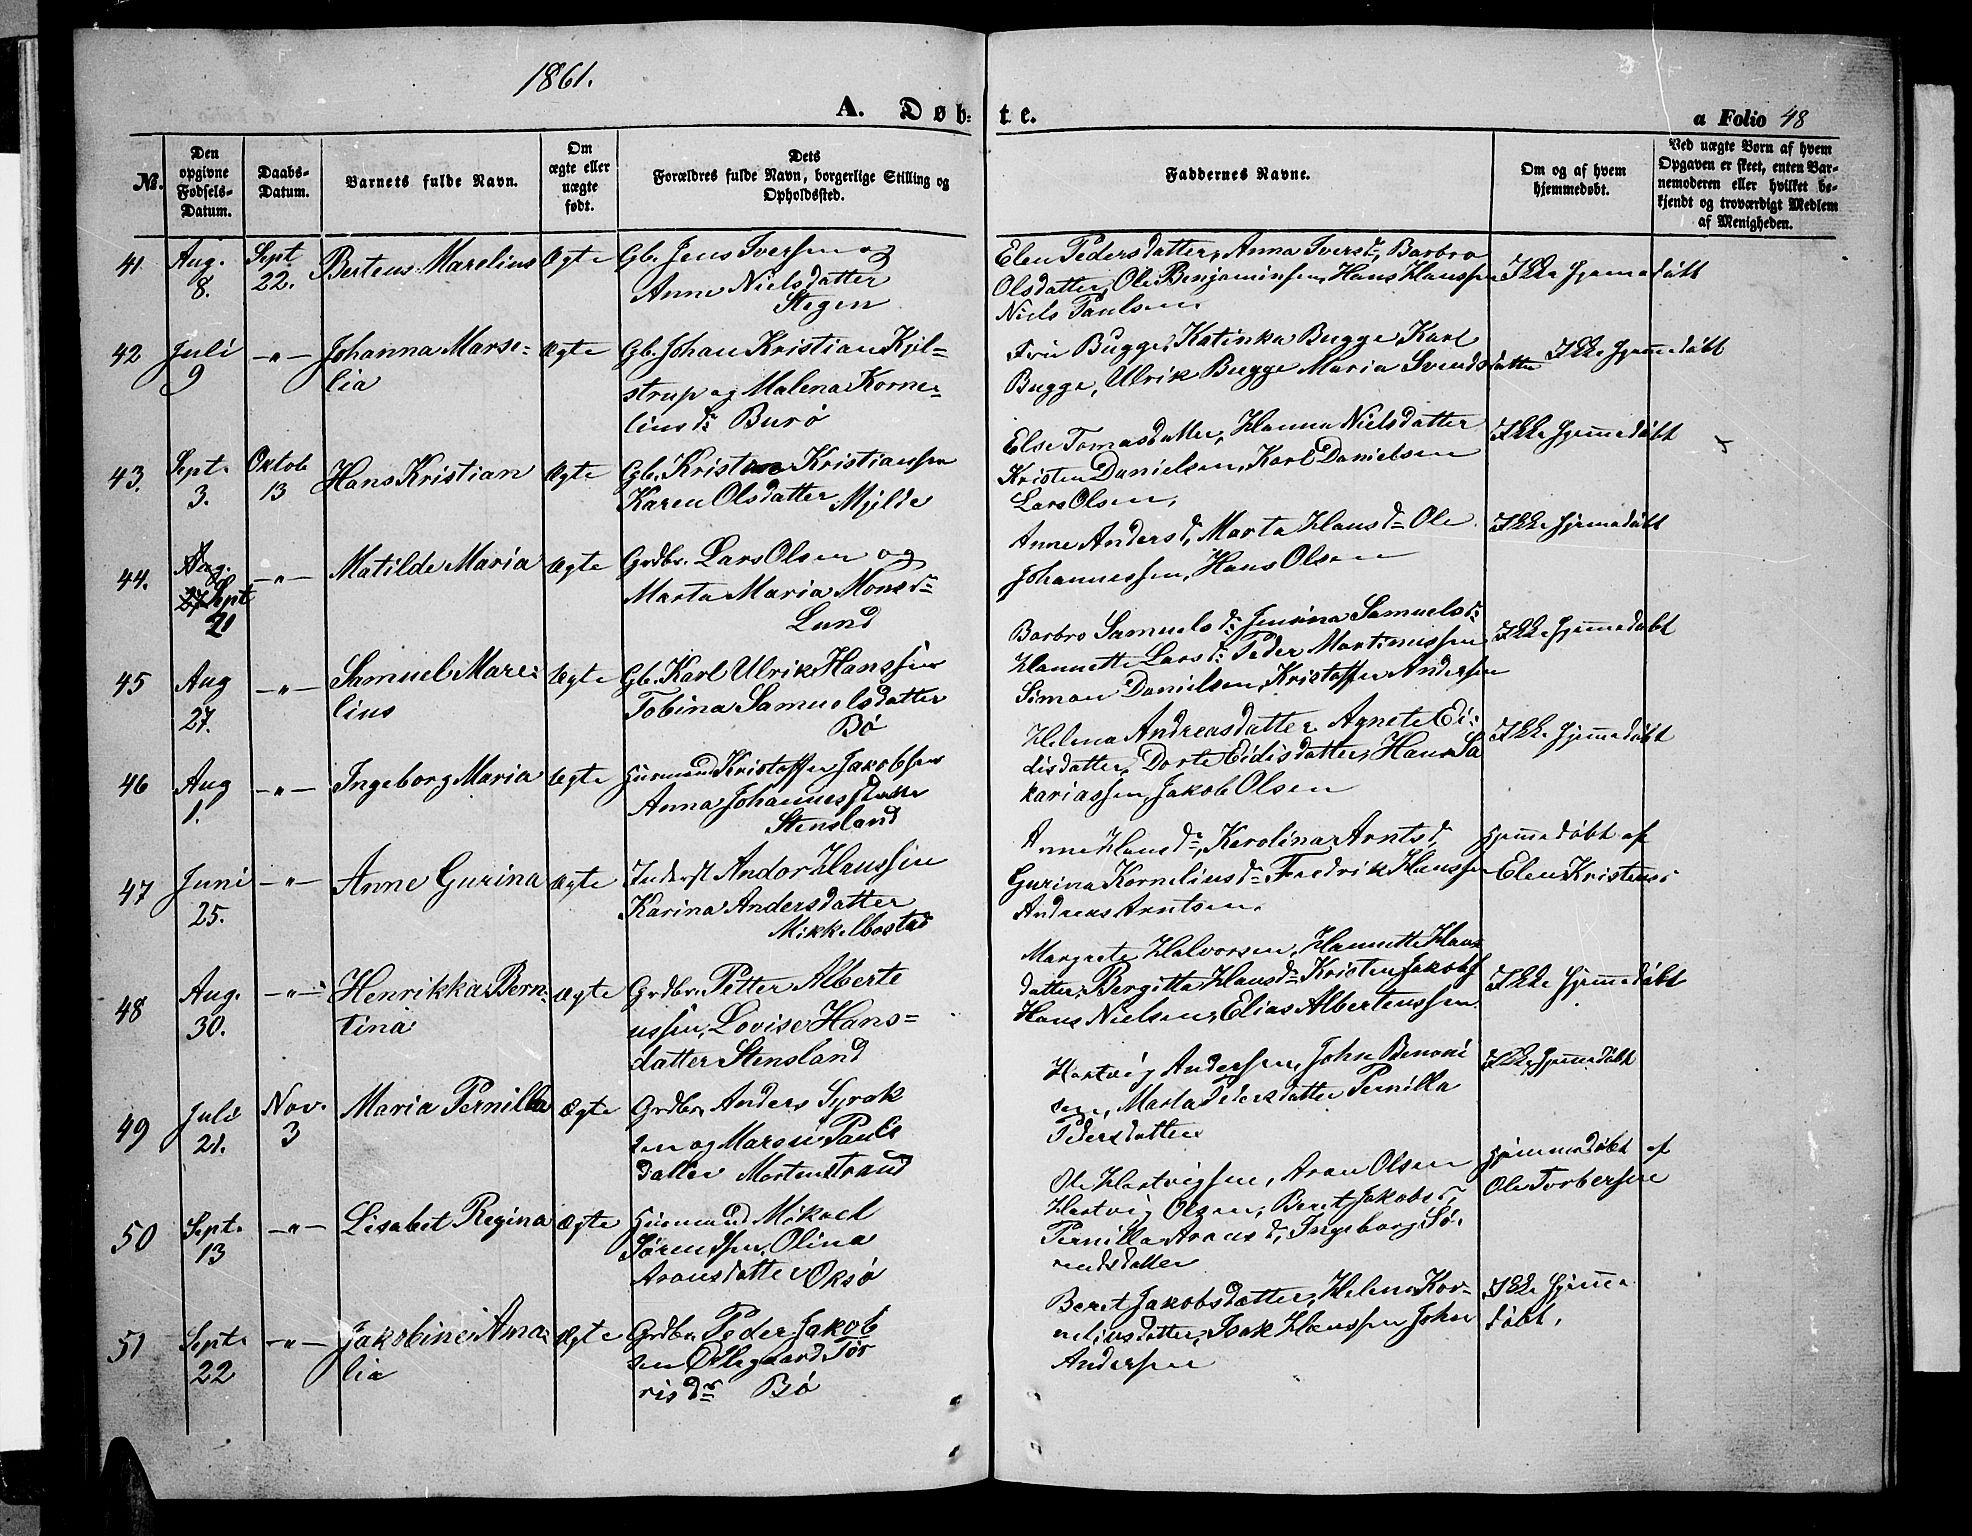 1861.
A. Døb-
te.
a Folio 48
No.
Den
opgivne
Fødsels-
Datum.
Daabs-
Datum.
Barnets fulde Navn.
Om
ægte eller
uægte
født.
Dets
Forældres fulde Navn, borgerlige Stilling og
Opholdssted.
Faddernes Navne.
Om og af hvem
hjemmedøbt.
Ved uægte Børn af hvem
Opgaven er skeet, enten Bar-
nemoderen eller hvilket be-
kjendt og troværdigt Medlem
af Menigheden.
41
Aug.
8.
Sept
22.
Berteus Marelius
Ægte
Gb. Jens Iversen og
Anne Nielsdatter
Stegen
Elen Pedersdatter, Anna Iversd:, Barbro
Olsdatter, Ole Benjaminsen, Hans Hanssen
Niels Paulsen.
Ikke hjemmedøbt
42
Juli
9
-"-
Johanna Marse-
lia
Ægte
Gb. Johan Kristian Kjil-
strup og Malena Korne-
liusd: Burø
Fru Bugge, Katinka Bugge, Karl
Bugge, Ulrik Bugge Maria Svendsdatter
Ikke hjemmedøbt
43.
Sept.
3.
Oktob
13
Hans Kristian
Ægte
Gb. Kristen Kristiansen
Karen Olsdatter Mjelde
Else Tomasdatter, Hanna Nielsdatter
Kristen Danielsen, Karl Danielsen
Lars Olsen,
Ikke hjemmedøbt
44.
Aug.
27 Sept
21
-"-
Matilde Maria
Ægte
Grdbr. Lars Olsen og
Marta Maria Monsd:
Lund
Anne Andersd, Marta Hansd: Ole
Johannessen, Hans Olsen
Ikke hjemmedøbt
45
Aug
27.
-"-
Samuel Mare-
lius
Ægte
Gb. Karl Ulrik Hanssen
Tobina Samuelsdatter
Bø
Barbro Samuelsd: Jensina Samuelsd:
Hannette Larsd: Peder Martinussen
Simon Danielsen, Kristoffer Andersen
Ikke hjemmedøbt
46
Aug
1.
-"-
Ingeborg Maria
Ægte
Huusmand Kristoffer Jakobsen
Anna Johannesdatter
Stensland
Helena Andreasdatter, Agnete Ei-
disdatter, Dorte Eidisdatter, Hans Sa
kariassen, Jakob Olsen
Ikke hjemmedøbt
47
Juni
25.
-"-
Anne Gurina
Ægte
Inderst Andor Hanssen
Karina Andersdatter
Mikkelbostad
Anne Hansd:, Karolina Arntsd,
Gurina Korneliusd: Fredrik Hanssen
Andreas Arntsen.
hjemmedøbt af
Elen Kristens:
48
Aug.
30.
-"-
Henrikka Bern-
tina
Ægte
Grdbr. Petter Alberte
ussen, Lovise Hans-
datter Stensland
Margrete Halvorsen, Hannette Hans
datter, Bergitta Hansd: Kristen Jakobs
Hans Nielsen, Elias Albertenssen
Ikke hjemmedøbt
49
Juli
21.
Nov.
3
Maria Pernilla
Ægte
Grdbr. Anders Syrak
sen og Marsi Pauls
datter Mortenstrand
Hartvig Andersen, John Benoni
sen, Marta Pedersdatter Pernilla
Pedersdatter
Ikke hjemmedøbt
50
Sept.
13
-"-
Lisabet Regina
Ægte
Huusmand Mikael
Sørendsen, Olina
Aronsdatter Oksø
Ole Hartvigsen, Aron Olsen
Hartvig Olsen, Beret Jakobsd,
Pernilla Aronsd, Ingeborg Sø-
rendsdatter
hjemmedøbt af
Ole Torbersen
51
Sept.
22
-"-
Jakobine Ama-
lia
Ægte
Grdbr. Peder Jakob
sen Ollegaard Tør
risdr Bø
Beret Jakobsdatter, Helena Kor-
neliusdatter, Isak Hanssen John
Andersen
Ikke hjemme
døbt,